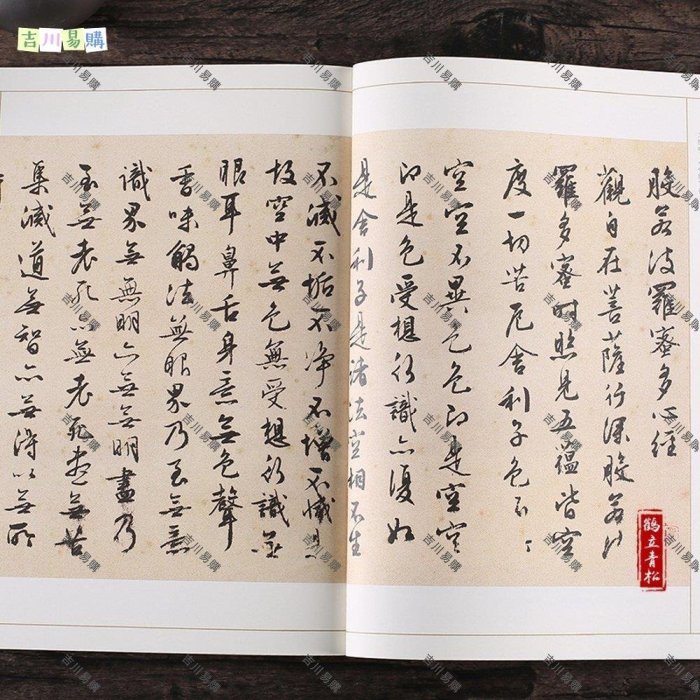 吉川易購
般若波羅蜜多心經
觀自在菩薩行深般若波
羅多蜜時照見五蘊皆空
度一切苦厄舍利子色不
空空不異色色即是空空
即是色受想行識亦復如
是舍利子是諸法空相不生
不滅不垢不淨不增不減是
故空中無色無受想行識無
眼耳鼻舌身意無色聲
香味觸法無眼界乃至無意
識界無無明亦無無明盡乃
至無老死亦無老死盡無苦
集滅道無智亦無得以無所
鶴立青松